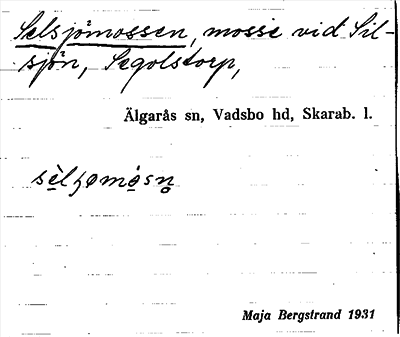 Selsjömossen, mosse vid Sil-
sjön, Segolstorp,
Älgarås sn, Vadsbo hd, Skarab. l.
Maja Bergstrand 1931